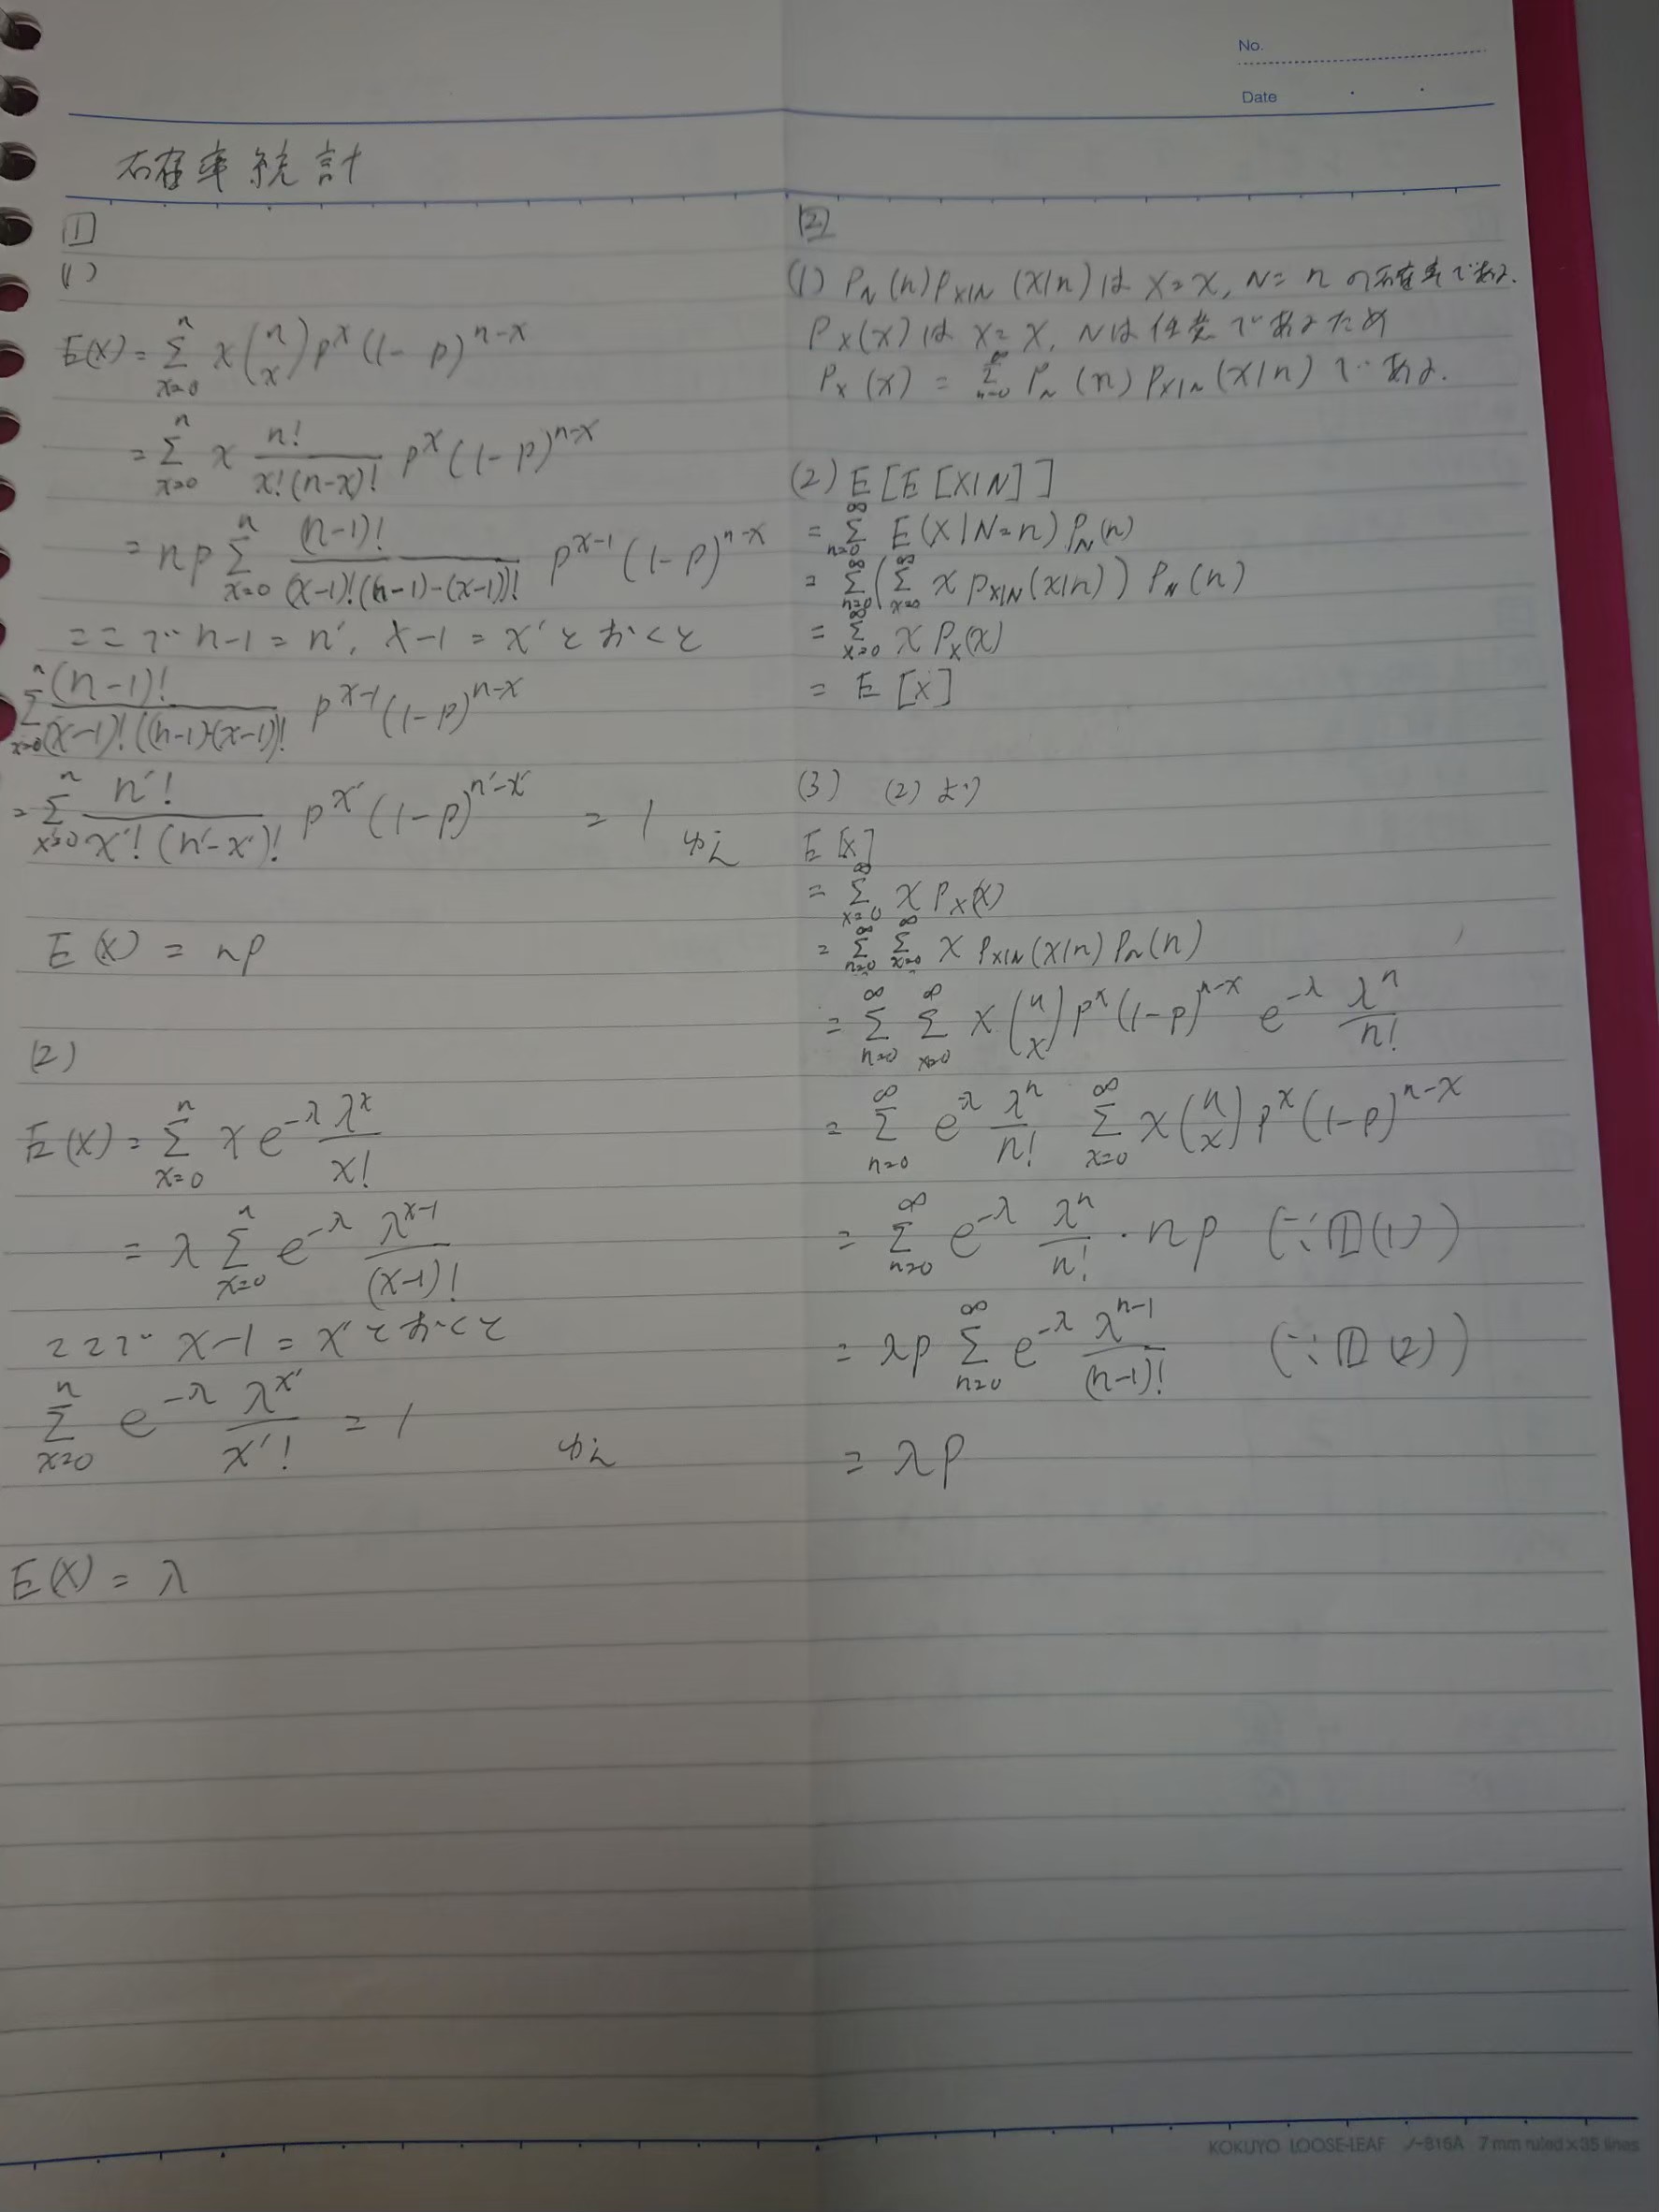 No.
Date
確率統計
[1]
(1)
E(X) = Σ_{x=0}^{n} x (n x) p^x (1-p)^{n-x}
= Σ_{x=0}^{n} x n!/(x!(n-x)!) p^x (1-p)^{n-x}
= np Σ_{x=0}^{n} (n-1)!/((x-1)!((n-1)-(x-1))!) p^{x-1} (1-p)^{n-x}
ここで n-1 = n', x-1 = x' とおくと
Σ_{x=0}^{n} (n-1)!/((x-1)!((n-1)(x-1))! p^{x-1} (1-p)^{n-x}
= Σ_{x'=0}^{n} n'!/(x'!(n'-x')!) p^{x'} (1-p)^{n'-x'} = 1 ゆえ
E(X) = np
(2)
E(X) = Σ_{x=0}^{n} x e^{-λ} λ^x/x!
= λ Σ_{x=0}^{n} e^{-λ} λ^{x-1}/(x-1)!
ここで x-1 = x' とおくと
Σ_{x=0}^{n} e^{-λ} λ^{x'}/x'! = 1 ゆえ
E(X) = λ
[2]
(1) P_N(n) P_{X|N}(x|n) は X=x, N=n の確率である.
P_X(x) は X=x, Nは任意であるため
P_X(x) = Σ_{n=0}^{∞} P_N(n) P_{X|N}(x|n) である.
(2) E[E[X|N]]
= Σ_{n=0}^{∞} E(X|N=n) P_N(n)
= Σ_{n=0}^{∞} (Σ_{x=0}^{∞} x P_{X|N}(x|n)) P_N(n)
= Σ_{x=0}^{∞} x P_X(x)
= E[X]
(3) (2)より
E[X]
= Σ_{x=0}^{∞} x P_X(x)
= Σ_{n=0}^{∞} Σ_{x=0}^{∞} x P_{X|N}(x|n) P_N(n)
= Σ_{n=0}^{∞} Σ_{x=0}^{∞} x (n x) p^x (1-p)^{n-x} e^{-λ} λ^n/n!
= Σ_{n=0}^{∞} e^{-λ} λ^n/n! Σ_{x=0}^{∞} x (n x) p^x (1-p)^{n-x}
= Σ_{n=0}^{∞} e^{-λ} λ^n/n! · np (∵[1](1))
= λp Σ_{n=0}^{∞} e^{-λ} λ^{n-1}/(n-1)! (∵[1](2))
= λp
KOKUYO LOOSE-LEAF ノ-816A 7 mm ruled×35 lines